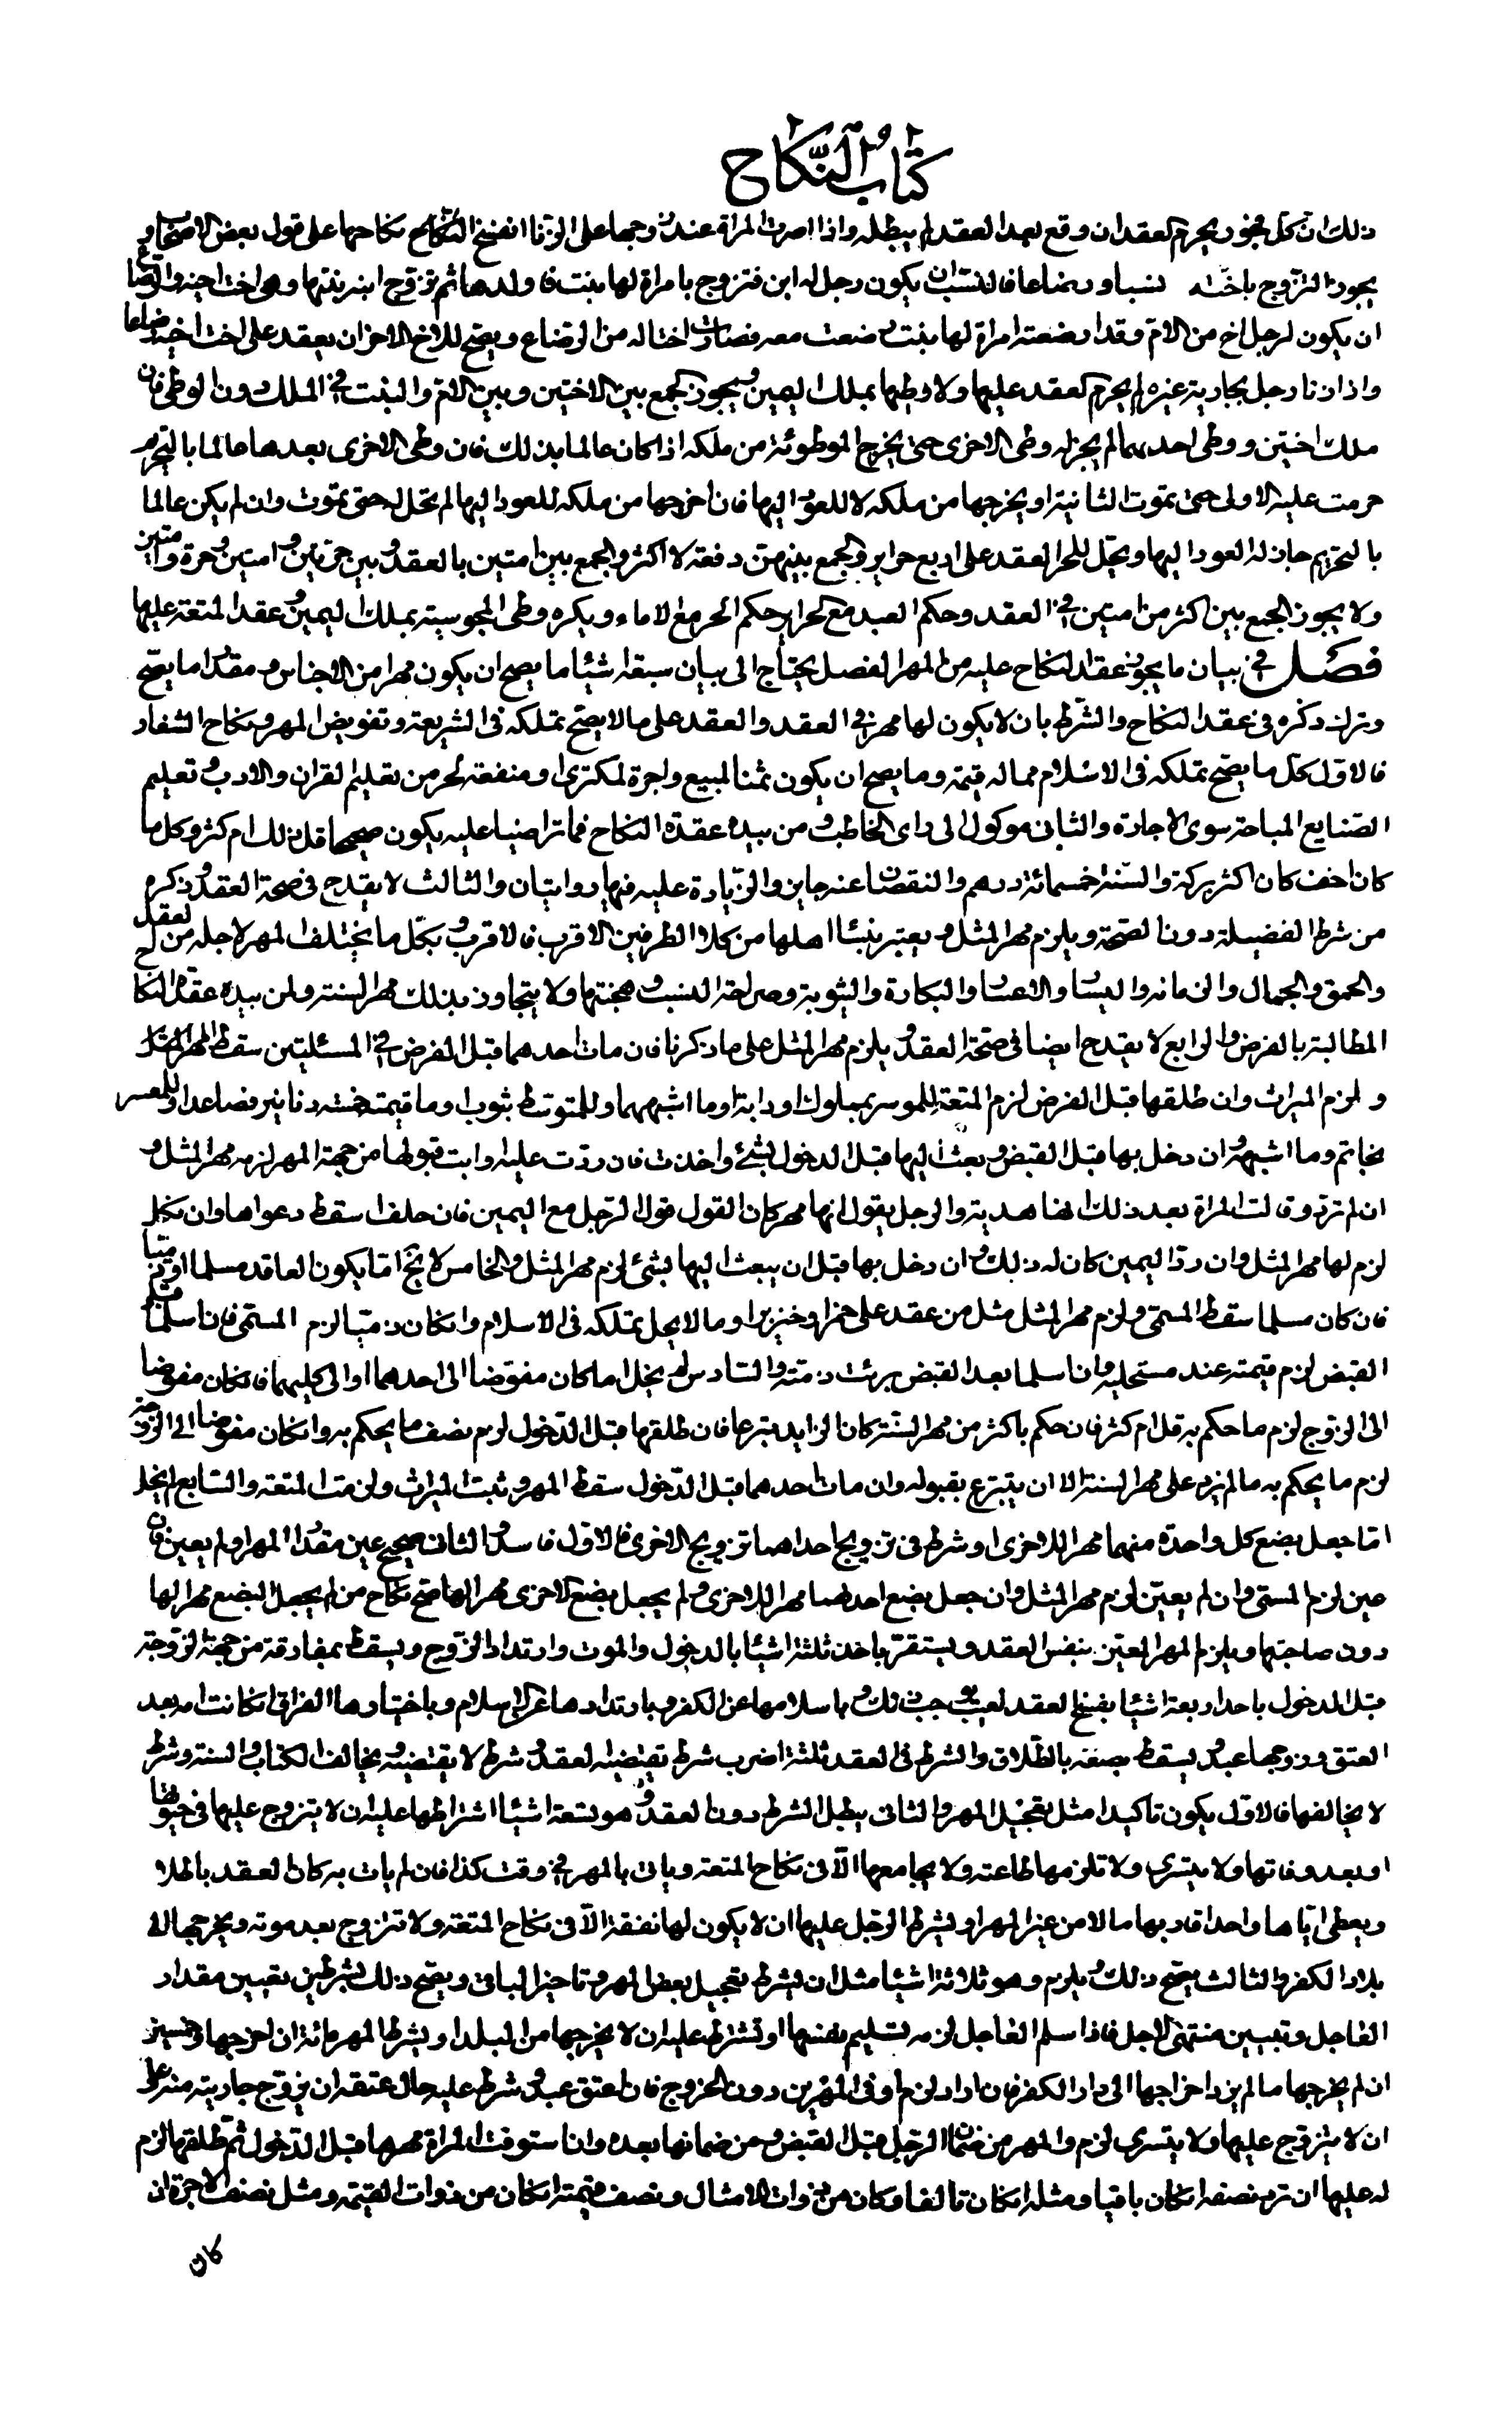 كتاب النكاح
ذلك ان كل فجور يحرم العقد ان وقع بعد العقد لم يبطله واذا اصرت المراة عند زوجها على الزنا انفسخ النكاح نكاحها على قول بعض الاصحاب و
يجوز التزوج باخته نسبا ورضاعا فالنسب ان يكون رجل له ابن فتزوج بامراة لها بنت فاولدها ثم تزوج ابنه بنتها وهى اخت اخيه والرضاع
ان يكون لرجل اخ من الام وقد ارضعته امراة لها بنت رضعت معه فصارت اختا له من الرضاع ويصح للاخ الاخر ان يعقد على اخت اخيه رضاعا
واذا زنا رجل بجارية غيره لم يحرم العقد عليها ولا وطيها بملك اليمين ويجوز الجمع بين الاختين وبين الام والبنت فى الملك دون الوطى فان
ملك اختين ووطى احدهما لم يجز له وطى الاخرى حتى يخرج الموطوئة من ملكه اذا كان عالما بذلك فان وطى الاخرى بعدها عالما بالتحريم
حرمت عليه الاولى حتى تموت الثانية او يخرجها من ملكه لا للعود اليها فان اخرجها من ملكه للعود اليها لم تحل له حتى تموت وان لم يكن عالما
بالتحريم جاز له العود اليها ويحل للحر العقد على اربع حراير والجمع بينهن دفعة لا اكثر والجمع بين امتين بالعقد وبين حرتين وامتين وحرة وامتين
ولا يجوز الجمع بين اكثر من امتين فى العقد وحكم العبد مع الحراير حكم الحر مع الاماء ويكره وطى المجوسية بملك اليمين وعقد المتعة عليها
فصل فى بيان ما يجوز عقد النكاح عليه من المهر الفصل يحتاج الى بيان سبعة اشياء ما يصح ان يكون مهرا من الاجناس ومقدار ما يصح
وترك ذكره فى عقد النكاح والشرط بان لا يكون لها مهر فى العقد والعقد على ما لا يصح تملكه فى الشريعة وتفويض المهر ونكاح الشغار
فالاول كل ما يصح تملكه فى الاسلام مما له قيمة وما يصح ان يكون ثمنا لمبيع واجرة لمكترى او منفعة لحر من تعليم القران والادب وتعليم
الصنايع المباحة سوى الاجارة والثانى موكول الى راى الخاطب ومن بيده عقدة النكاح فما تراضيا عليه يكون صحيحا قل ذلك ام كثر وكل ما
كان اخف كان اكثر بركة والسنة خمسمائة درهم والنقصان عنه جايز والزيادة عليه فيها روايتان والثالث لا يقدح فى صحة العقد وذكره
من شرط الفضيلة دون الصحة ويلزم مهر المثل ويعتبر بنساء اهلها من كلا الطرفين الاقرب فالاقرب وبكل ما يختلف المهر لاجله من العقل
والحمق والجمال والزمانه واليسار والاعسار والبكارة والثيوبة وصراحة النسب وهجنتها ولا يتجاوز بذلك مهر السنة ولمن بيده عقدة النكاح
المطالبة بالفرض والرابع لا يقدح ايضا فى صحة العقد ويلزم مهر المثل على ما ذكرنا فان مات احدهما قبل الفرض فى المسئلتين سقط المهر
ولزم الميراث وان طلقها قبل الفرض لزم المتعة للموسر بمملوك او دابة او ما اشبههما وللمتوسط بثوب او ما قيمته خمسة دنانير فصاعدا وللمعسر
بخاتم وما اشبهه وان دخل بها قبل القبض وبعث اليها قبل الدخول بشئ واخذت فان ردت عليه وابت قبولها من جهة المهر لزمه مهر المثل و
ان لم ترد وقالت المراة بعد ذلك انها هدية والرجل يقول انها مهر كان القول قول الرجل مع اليمين فان حلف سقط دعواها وان نكل
لزم لها مهر المثل وان رد اليمين كان له ذلك وان دخل بها قبل ان يبعث اليها بشئ لزم مهر المثل والخامس لا يخ اما يكون العاقد مسلما او ذميا
فان كان مسلما سقط المسمى ولزم مهر المثل مثل من عقد على خمر او خنزير او ما لا يحل تملكه فى الاسلام وان كان ذميا لزم المسمى فان اسلما قبل
القبض لزم قيمته عند مستحليه وان اسلما بعد القبض برئت ذمته والسادس لم يخل اما كان مفوضا الى احدهما او الى كليهما فان كان مفوضا
الى الزوج لزم ما حكم به قل ام كثر فان حكم باكثر من مهر السنة كان الزايد تبرعا فان طلقها قبل الدخول لزم نصف ما يحكم به وان كان مفوضا الى الزوجة
لزم ما يحكم به ما لم يزد على مهر السنة الا ان يتبرع بقبوله وان مات احدهما قبل الدخول سقط المهر وثبت الميراث ولزمت المتعة والسابع لم يخل
اما جعل بضع كل واحدة منهما مهرا للاخرى او شرط فى تزويج احداهما تزويج الاخرى فالاول فاسد والثانى صحيح عين مقدار المهر او لم يعين فان
عين لزم المسمى وان لم يعين لزم مهر المثل وان جعل بضع احدهما مهرا للاخرى ولم يجعل بضع الاخرى مهرا لها صح نكاح من لم يجعل البضع مهرا لها
دون صاحبتها ويلزم المهر المعين بنفس العقد ويستقر باحد ثلثة اشياء بالدخول والموت وارتداد الزوج ويسقط بمفارقة من جهة الزوجة
قبل الدخول باحد اربعة اشياء بفسخ العقد لعيب يوجب ذلك وباسلامها عن الكفر وبارتدادها عن الاسلام وباختيارها الفراق ان كانت امة بعد
العتق وزوجها عبد ويسقط نصفه بالطلاق والشرط فى العقد ثلثة اضرب شرط تقتضيه العقد وشرط لا يقتضيه ويخالف الكتاب والسنة وشرط
لا يخالفها فالاول يكون تاكيدا مثل تعجيل المهر والثانى يبطل الشرط دون العقد وهو تسعة اشياء اشتراطها عليه ان لا يتزوج عليها فى حيوتها
او بعد وفاتها ولا يتسرى ولا تلزمها طاعته ولا يجامعها الا فى نكاح المتعة وياتى بالمهر فى وقت كذا فان لم يات به كان العقد باطلا
ويعطى اباها واحدا قاربها مالا من غير المهر او يشرط الرجل عليها ان لا يكون لها نفقة الا فى نكاح المتعة ولا تتزوج بعد موته ويخرجها الى
بلاد الكفر والثالث يصح ذلك ويلزم وهو ثلاثة اشياء مثل ان يشرط تعجيل بعض المهر وتاخير الباقى ويصح ذلك بشرطين تعيين مقدار
العاجل وتعيين منتهى الاجل فاذا سلم العاجل لزمه تسليم نفسها او تشرط عليه ان لا يخرجها من البلد او يشرط المهر مائة ان اخرجها وخمسين
ان لم يخرجها ما لم يرد اخراجها الى دار الكفر فان اراد لزم اوفى المهرين دون الخروج فان اعتق عبده وشرط عليه حال عتقه ان يزوج جاريته منه على
ان لا يتزوج عليها ولا يتسرى لزم والمهر من ضمان الرجل قبل القبض ومن ضمانها بعده وان استوفت المراة مهرها قبل الدخول ثم طلقها لزم
له عليها ان ترد نصفه ان كان باقيا ومثله ان كان تالفا وكان من ذوات الامثال ونصف قيمته ان كان من ذوات القيمة ومثل نصف الاجرة ان
كان